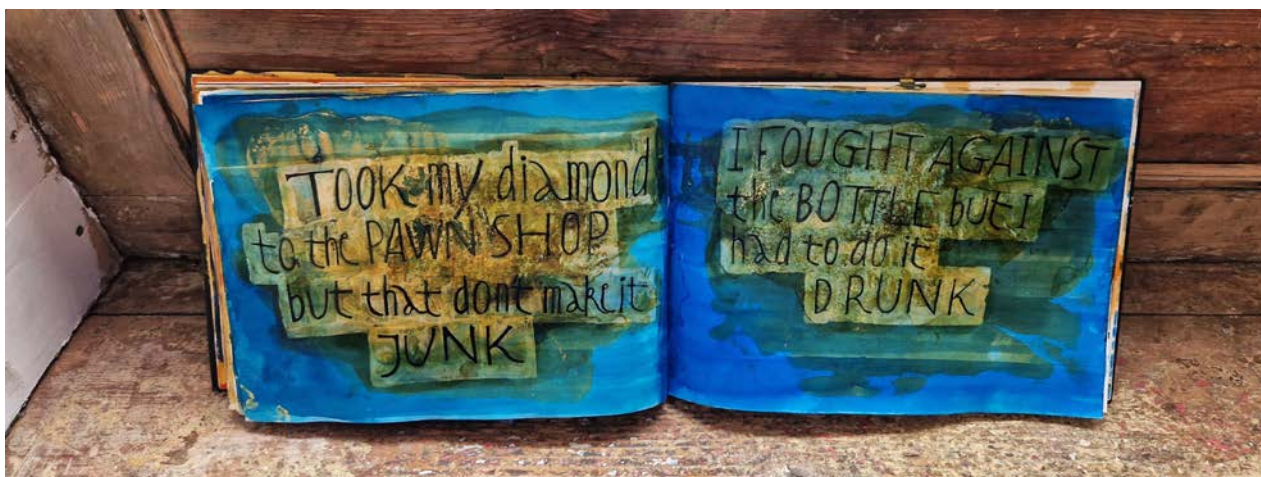 TOOK my diamond
to the PAWN SHOP
but that dont make it
JUNK
I FOUGHT AGAINST
the BOTTLE but I
had to do it
DRUNK